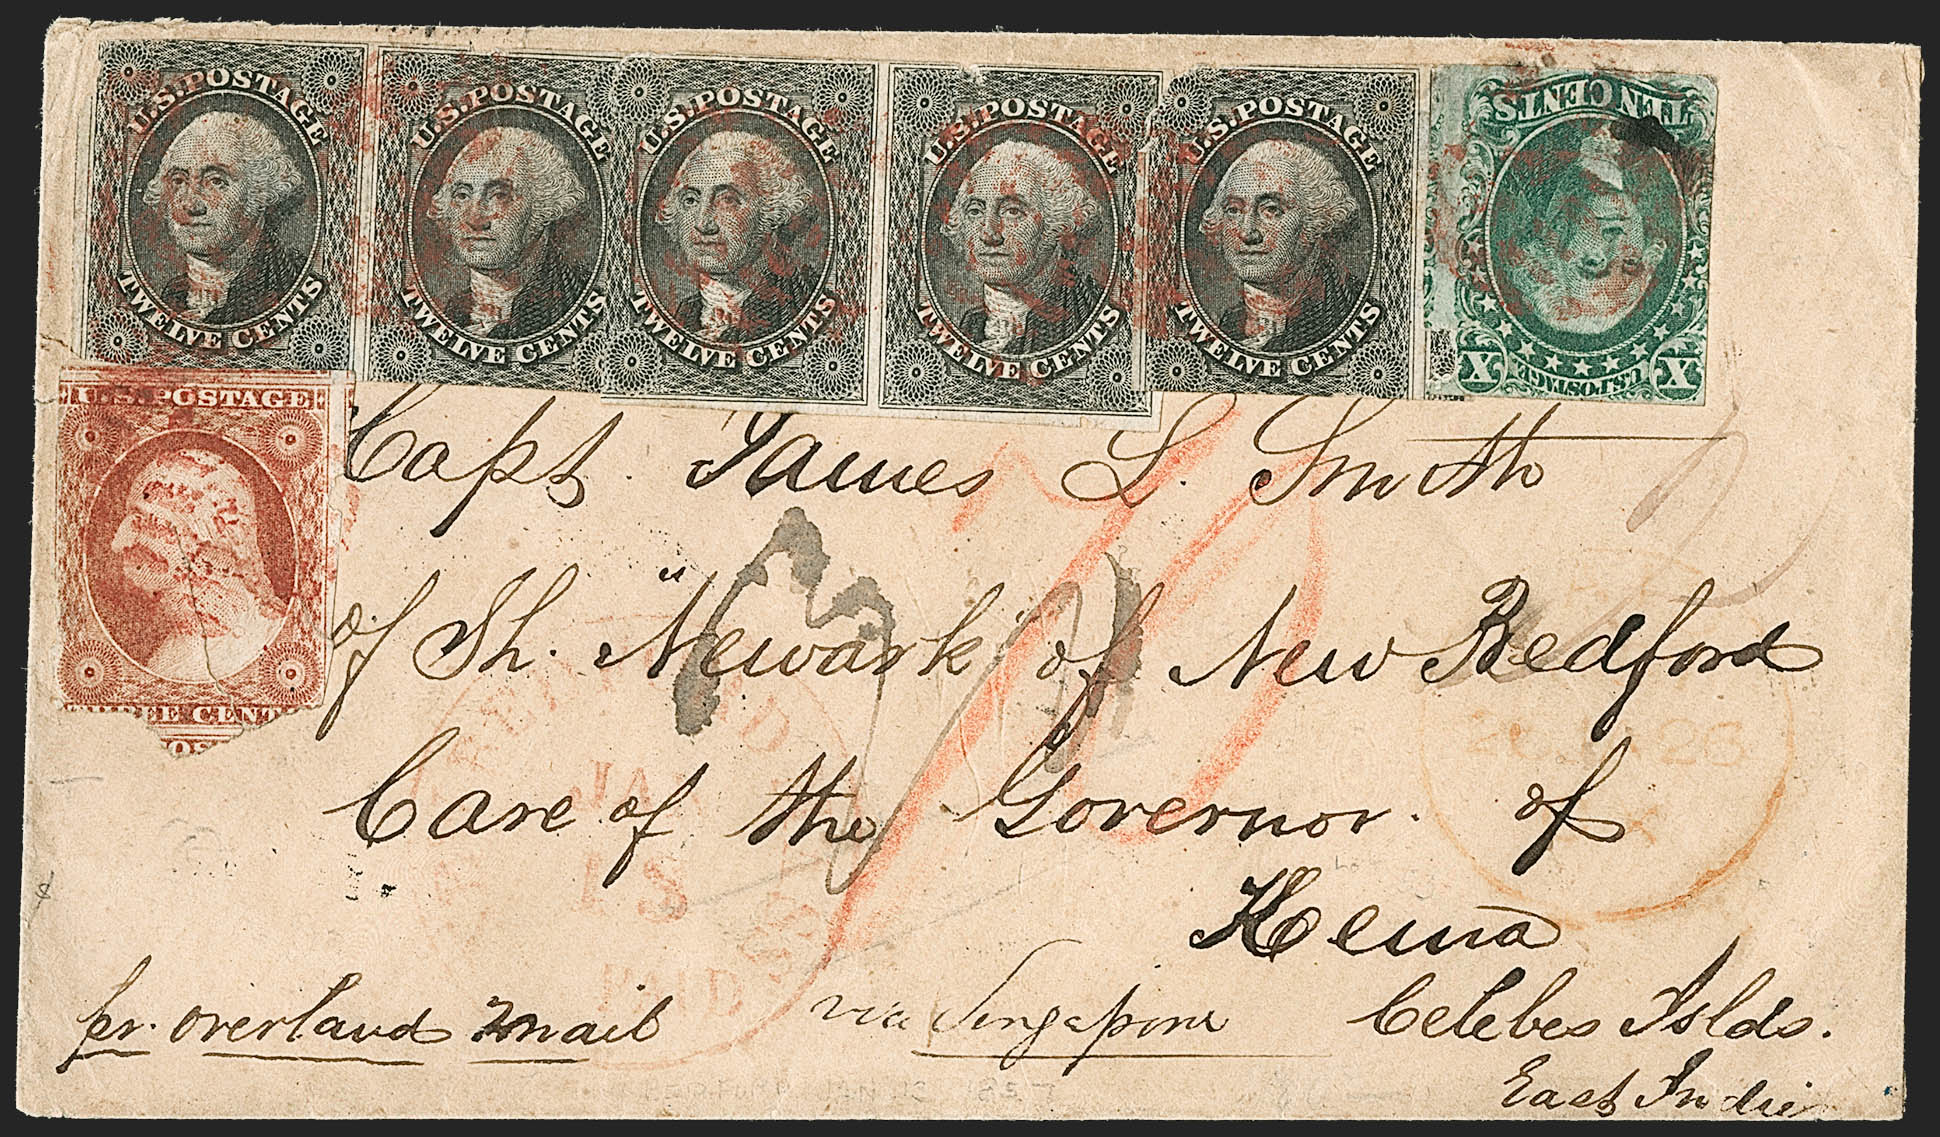 U.S. POSTAGE TWELVE CENTS
U.S. POSTAGE TWELVE CENTS
U.S. POSTAGE TWELVE CENTS
U.S. POSTAGE TWELVE CENTS
U.S. POSTAGE TWELVE CENTS
TEN CENTS X U.S. POSTAGE X
U.S. POSTAGE
THREE CENT
Capt. James L. Smith
of Sh. "Newark" of New Bedford
Care of the Governor. of
Kema
Celebes Islds.
East Indie
pr. overland mail
via Singapore
70
PAID
JAN
18
PAID
26